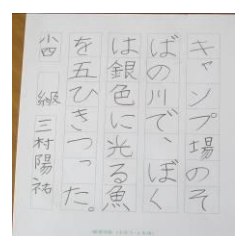 キャンプ場のそ
ばの川で、ぼく
は銀色に光る魚
を五ひきつった。
小四 級 三村陽祐